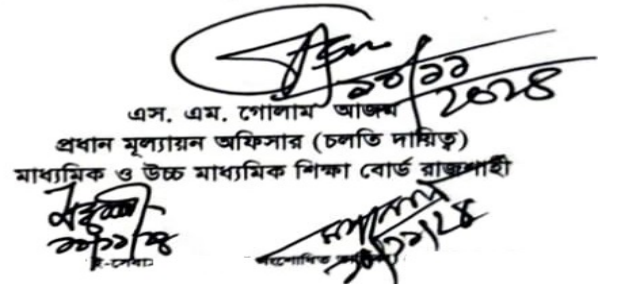 ২০/১১
২০২৪
এস. এম. গোলাম আজম
প্রধান মূল্যায়ন অফিসার (চলতি দায়িত্ব)
মাধ্যমিক ও উচ্চ মাধ্যমিক শিক্ষা বোর্ড রাজশাহী
২০/১১/২৪
ই-সেবা